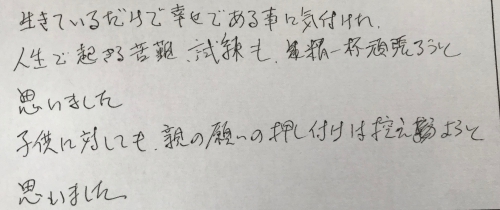 生きているだけで幸せである事に気付けた。
人生で起きる苦難、試練も、精一杯頑張ろうと
思いました
子供に対しても、親の願いの押し付けは控えようと
思いました。